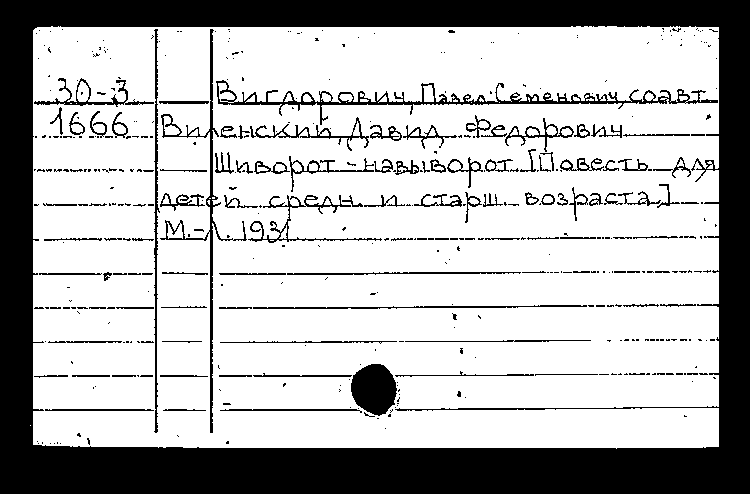 30-3 Вигдорович, Павел Семенович, соавт.
1666 Виленский, Давид Федорович
Шиворот-навыворот. [Повесть для
детей средн. и старш. возраста.]
М.-Л. 1931